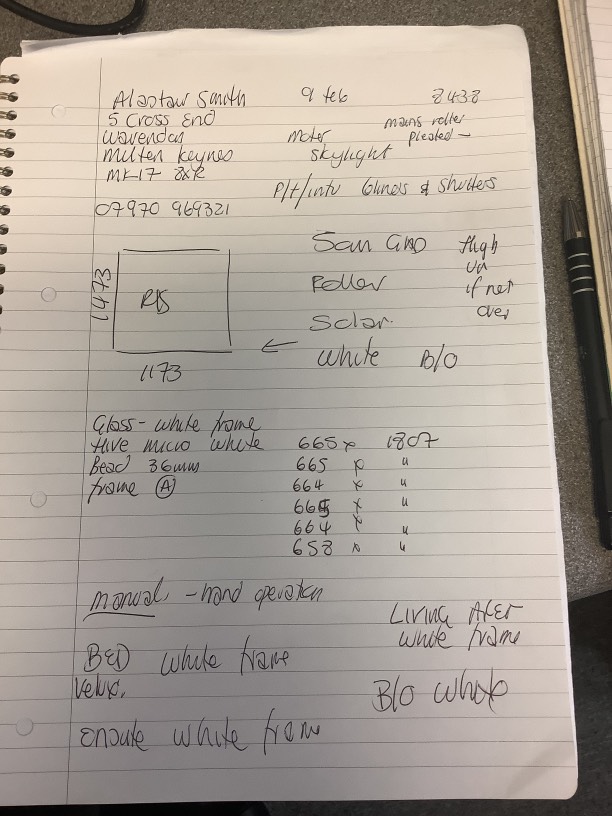 Alastaw Smith 9 feb 8438
5 Cross End
wavendon
Milten keynes
MK17
07970 969321
mains roller
pleated -
motor
skylight
P/f/intu blinds & shutters
1473
1173
San Gno
Roller
Solar.
← white B/O
High
un
if not
over
Gloss - white frame
Hive micro white
Bead 36mm
frame Ⓐ
665 x 1807
665 x "
664 x "
665 x "
664 x "
658 x "
manual - hand operation
Living After
white frame
BED white frame
Velux.
B/O white
Ensuite white frame